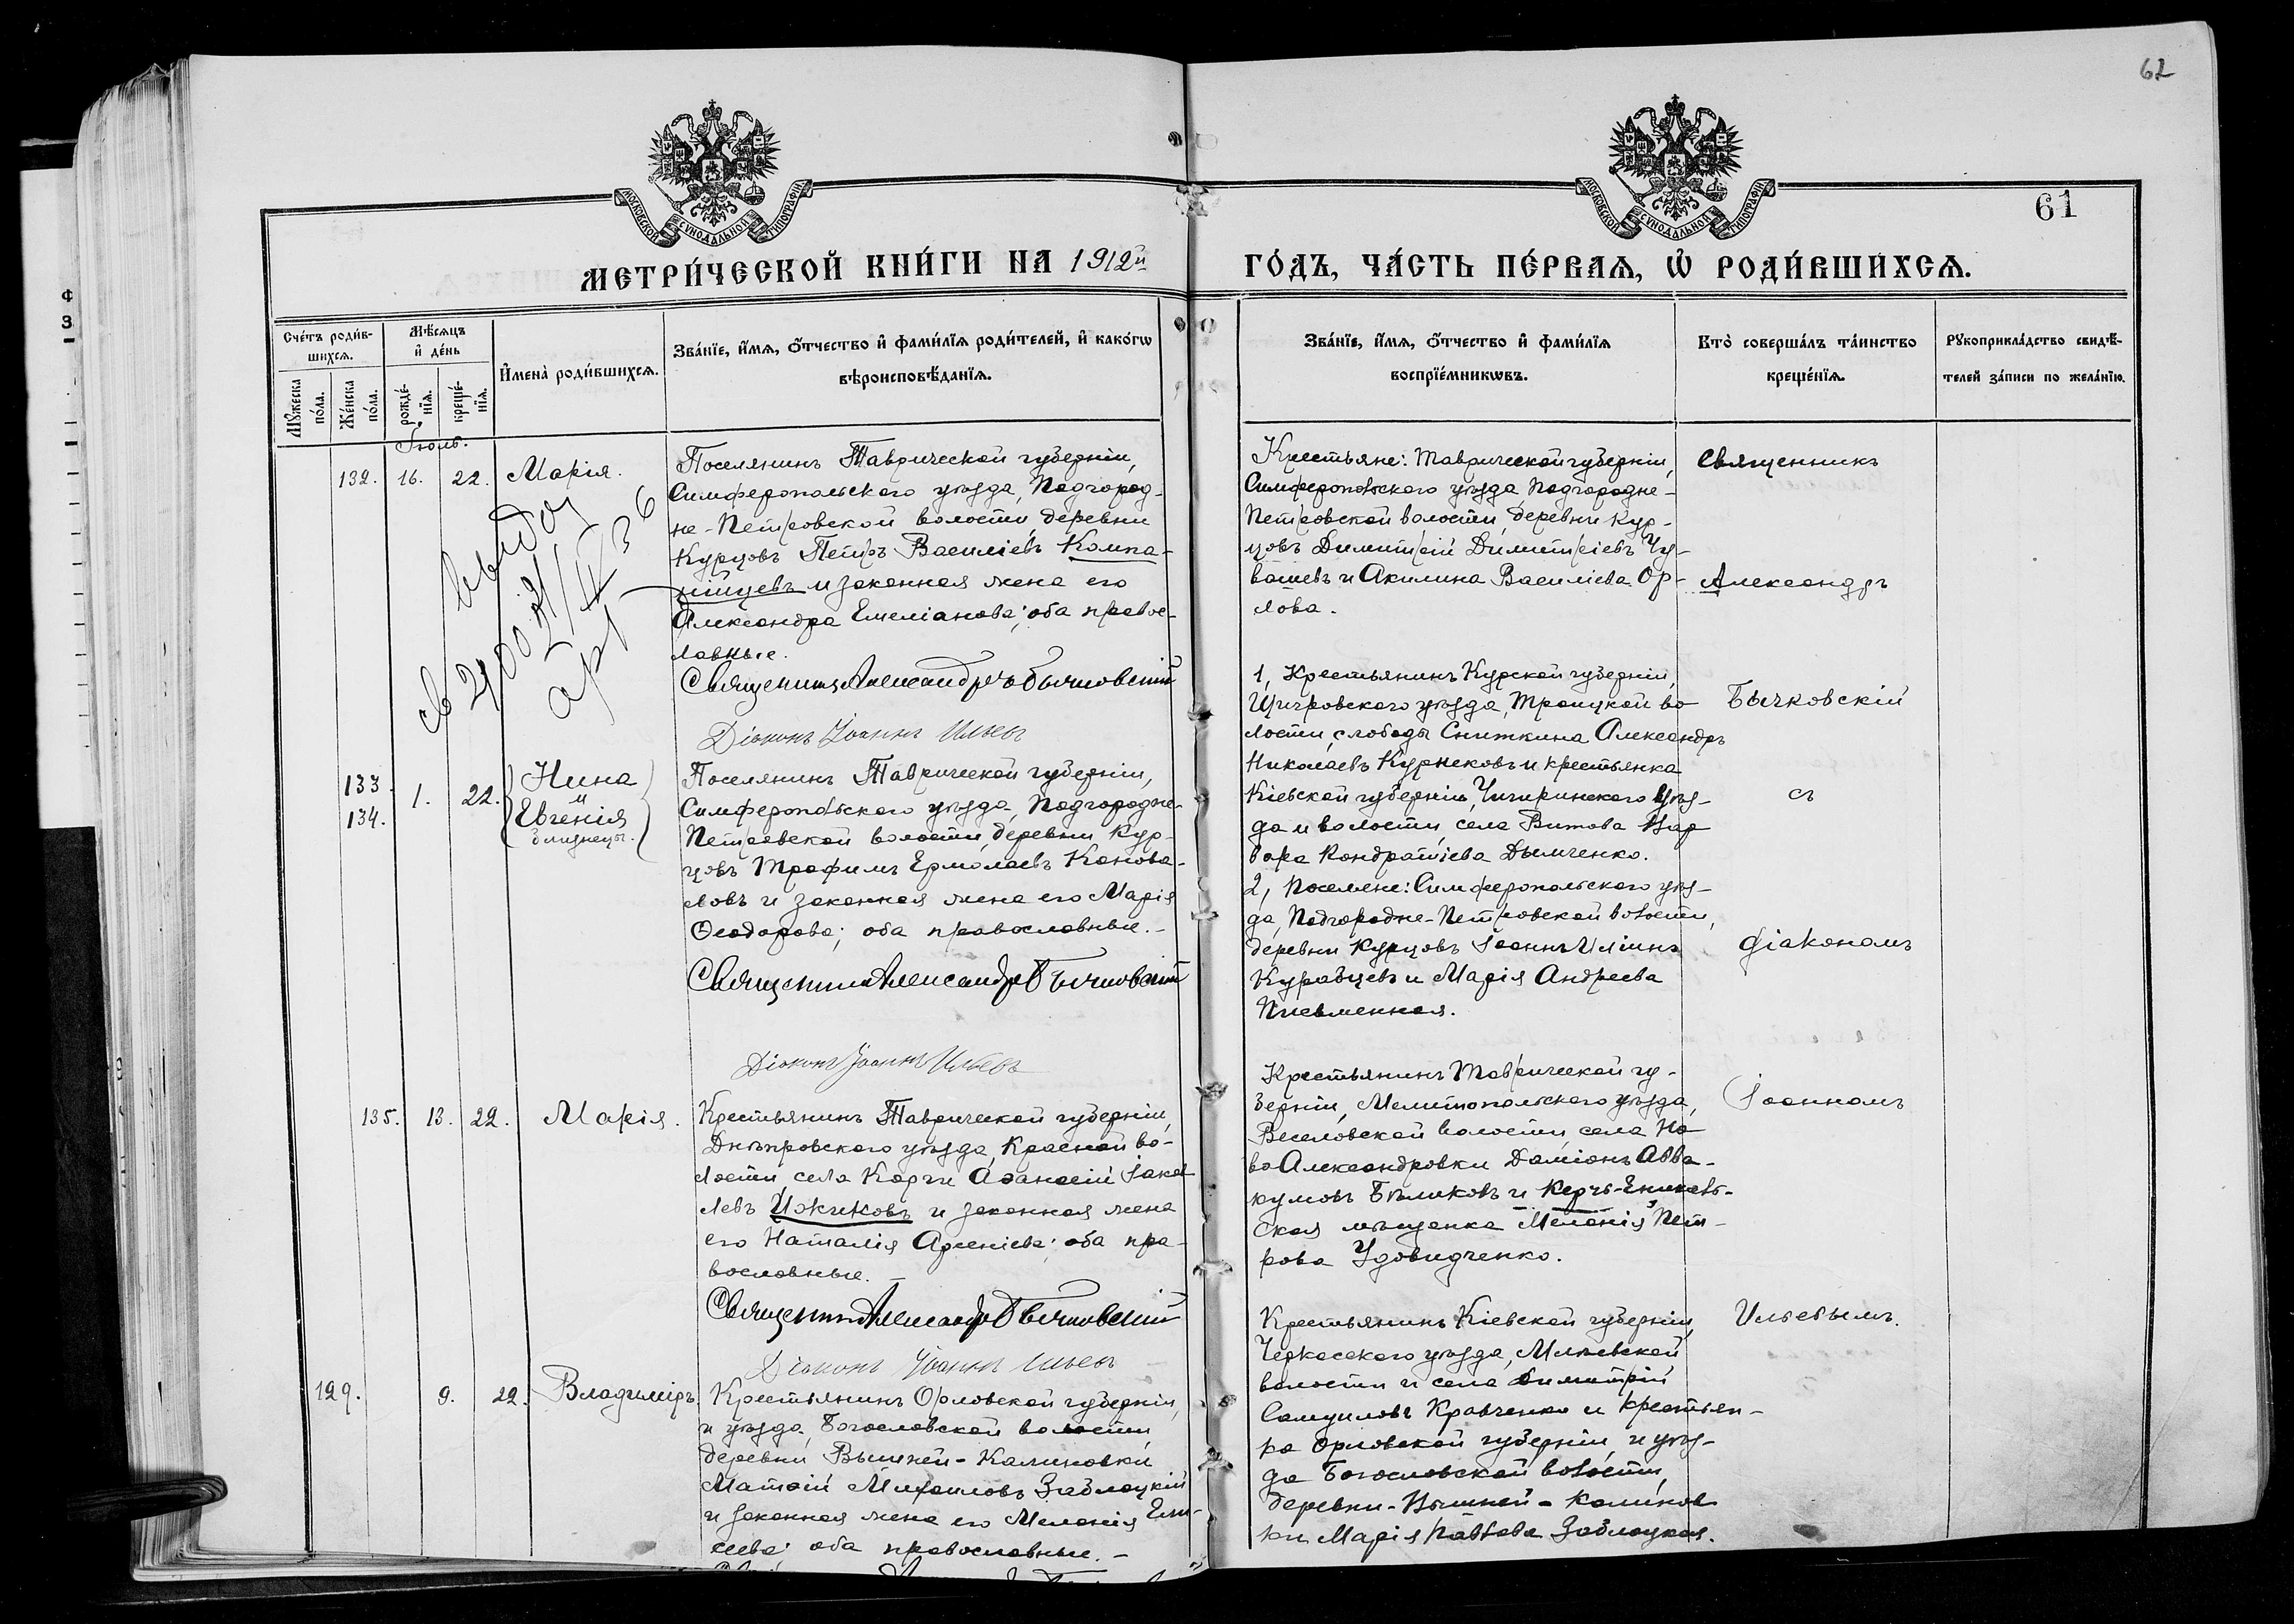 62
61
МОСКОВСКОЙ СУНОДАЛЬНОЙ ТИПОГРАФІИ
МОСКОВСКОЙ СУНОДАЛЬНОЙ ТИПОГРАФІИ
МЕТРИ́ЧЕСКОЙ КНИ́ГИ НА 1912й
ГО́ДЪ, ЧА́СТЬ ПЕ́РВАѦ, Ѡ РОДИ́ВШИХСѦ.
Сче́тъ роди́в-
шихсѧ.
Мꙋжеска по́ла.
Же́нска по́ла.
Мѣ́сѧцъ
и҆ де́нь
рожде́-
нїѧ.
креще́-
нїѧ.
И҆мена̀ роди́вшихсѧ.
Зва́нїе, и҆́мѧ, ѻ҆́тчество и҆ фами́лїѧ роди́телей, и҆ како́гѡ
вѣроисповѣ́данїѧ.
Зва́нїе, и҆́мѧ, ѻ҆́тчество и҆ фами́лїѧ
воспрїе́мникѡвъ.
Кто̀ соверша́лъ та́инство
креще́нїѧ.
Рꙋкоприкла́дство свидѣ́-
телей за́писи по жела́нїю.
Іюль.
132. 16. 22. Марія.
Поселянинъ Таврической губерніи,
Симферопольскаго уѣзда, Подгород-
не-Петровской волости, деревни
Курцовъ Петръ Василіевъ Компа-
нійцевъ и законная жена его
Александра Емеліанова; оба правос-
лавные.
Священникъ Александръ Бычковскій
Діаконъ Іоаннъ Ильевъ
Крестьяне: Таврической губерніи,
Симферопольскаго уѣзда, Подгородне-
Петровской волости, деревни Кур-
цовъ Димитрій Димитріевъ Чу-
вашевъ и Акилина Василіева Ор-
лова.
Священникъ
Александръ
Бычковскій
съ
діакономъ
Іоанномъ
Ильевымъ.
133. 134. 1. 22. Нина
и
Евгенія
близнецы.
Поселянинъ Таврической губерніи,
Симферопольскаго уѣзда, Подгородне-
Петровской волости, деревни Кур-
цовъ Трофимъ Ермолаевъ Конова-
ловъ и законная жена его Марія
Ѳеодорова; оба православные.-
Священникъ Александръ Бычковскій
Діаконъ Іоаннъ Ильевъ
1, Крестьянинъ Курской губерніи,
Щигровскаго уѣзда, Троицкой во
лости, слободы Сниткина Александръ
Николаевъ и крестьянка
Кіевской губерніи, Чигиринскаго уѣз-
да и волости, села Витова Вар
вара Кондратіева Дымченко.
2, Поселяне: Симферопольскаго уѣз-
да, Подгородне-Петровской волости,
деревни Курцовъ Іоаннъ Иліинъ
Куравцевъ и Марія Андреева
Письменная.
135. 13. 22. Марія.
Крестьянинъ Таврической губерніи,
Днѣпровскаго уѣзда, Красной во-
лости, села Карги Аѳанасій Іаков
левъ Ижиковъ и законная жена
его Наталія Арсеніева; оба пра-
вославные. -
Священникъ Александръ Бычковскій
Діаконъ Іоаннъ Ильевъ
Крестьянинъ Таврической гу-
берніи, Мелитопольскаго уѣзда,
Веселовской волости, села Но
во Александровки Даміанъ Авва-
кумовъ Бѣликовъ и Керчь-Еникаль-
ская мѣщанка Меланія Пет-
рова Удовидченко.
129. 9. 22. Владиміръ.
Крестьянинъ Орловской губерніи,
и уѣзда, Богословской волости,
деревни Вышней-Калиновки
Матѳій Михаиловъ Заблоцкій
и законная жена его Меланія Ели-
сеева; оба православные. -
Крестьянинъ Кіевской губерніи,
Черкасскаго уѣзда, Мліевской
волости и села Димитрій
Самуиловъ Кравченко и крестьян-
ка Орловской губерніи, и уѣз-
да Богословской волости,
деревни-Вышней-Калинов
ки Марія Павлова Заблоцкая.